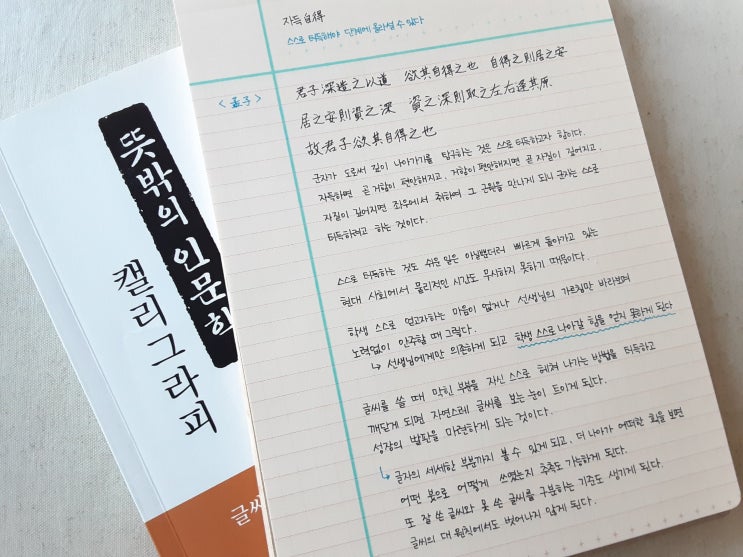 자득 自得
스스로 터득해야 단계에 올라설 수 있다
<孟子>
君子深造之以道 欲其自得之也 自得之則居之安
居之安則資之深 資之深則取之左右逢其原
故君子欲其自得之也
군자가 도로써 깊이 나아가기를 탐구하는 것은 스스로 터득하고자 함이다.
자득하면 곧 거함이 편안해지고, 거함이 편안해지면 곧 자질이 깊어지고,
자질이 깊어지면 좌우에서 취하여 그 근원을 만나게 되니 군자는 스스로
터득하려고 하는 것이다.
스스로 터득하는 것도 쉬운 일은 아닐뿐더러 빠르게 돌아가고 있는
현대 사회에서 물리적인 시간도 무시하지 못하기 때문이다.
학생 스스로 얻고자하는 마음이 없거나 선생님의 가르침만 바라보며
노력없이 안주할 때 그렇다.
↳ 선생님에게만 의존하게 되고 학생 스스로 나아갈 힘을 얻지 못하게 된다
글씨를 쓸 때 막힌 부분을 자신 스스로 헤쳐 나가는 방법을 터득하고
깨닫게 되면 자연스레 글씨를 보는 눈이 트이게 된다.
성장의 발판을 마련하게 되는 것이다.
↳ 글자의 세세한 부분까지 볼 수 있게 되고, 더 나아가 어떠한 획을 보면
어떤 붓으로 어떻게 쓰였는지 추측도 가능하게 된다.
또 잘 쓴 글씨와 못 쓴 글씨를 구분하는 기준도 생기게 된다.
글씨의 대 원칙에서도 벗어나지 않게 된다.
뜻밖의 인문학
캘리그라피
글씨